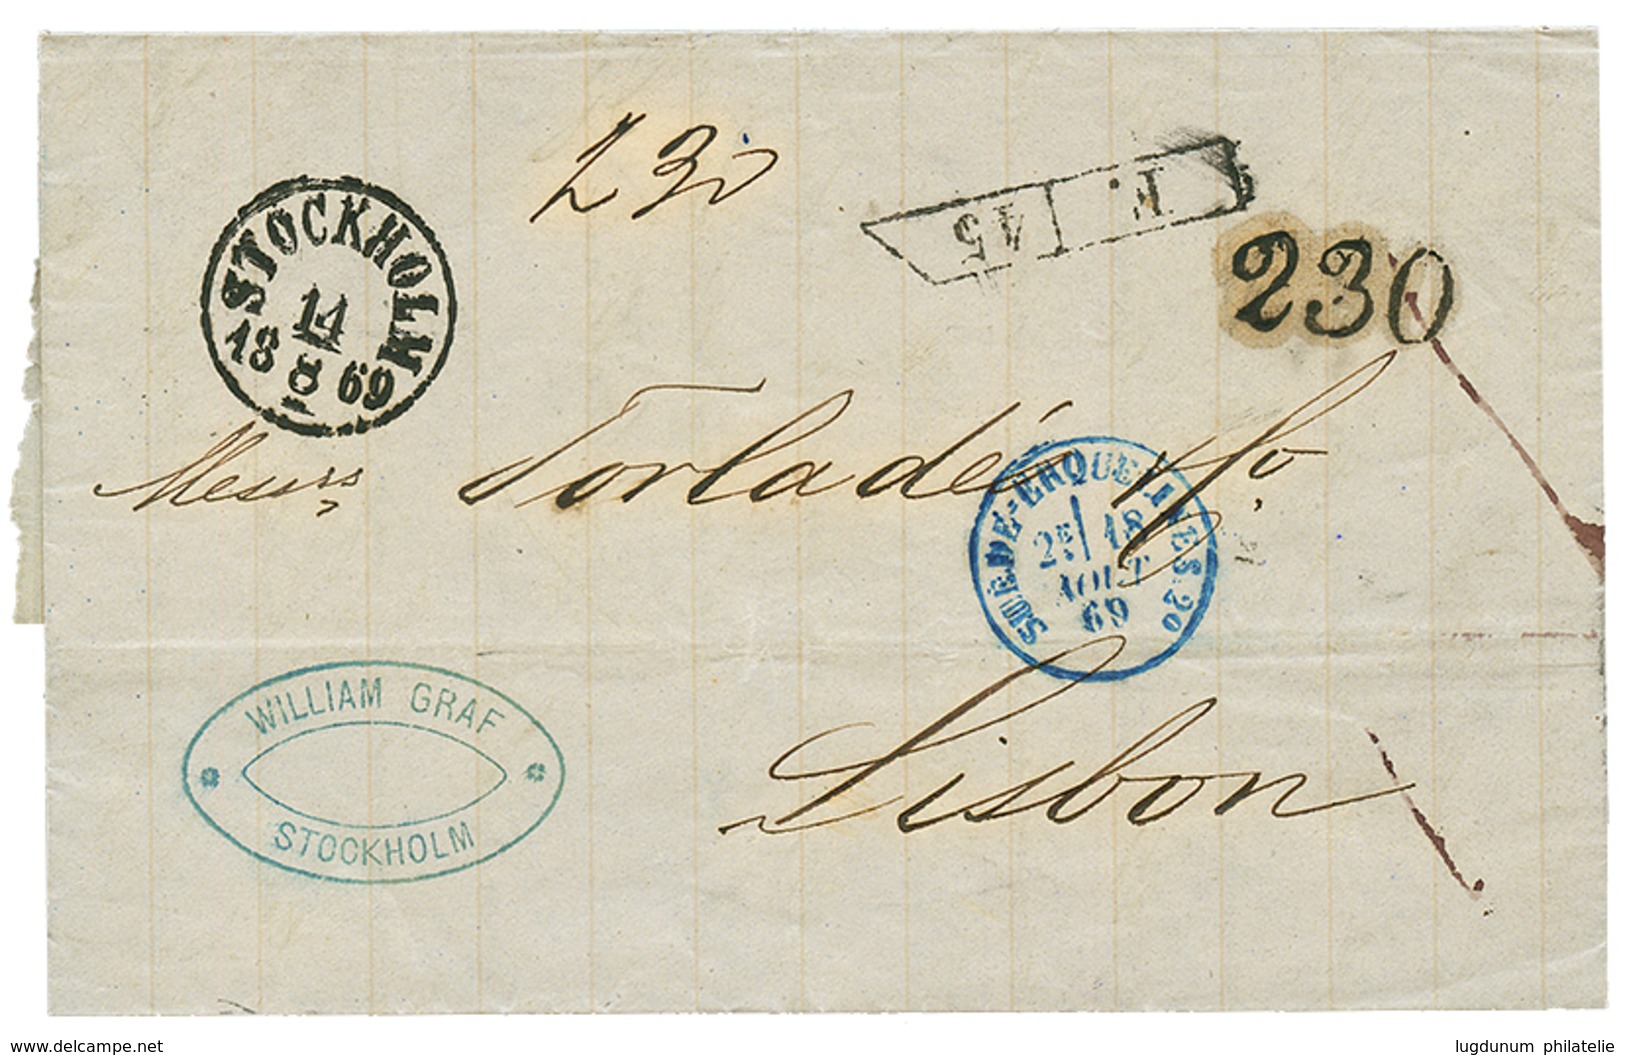 230
F. 45
230
STOCKHOLM
14
18 8 69
Messrs Torlades & Co.
SUEDE-ERQUELINES. 2º
2E 18
AOUT
69
Lisbon
WILLIAM GRAF
STOCKHOLM
www.delcampe.net
lugdunum philatelie